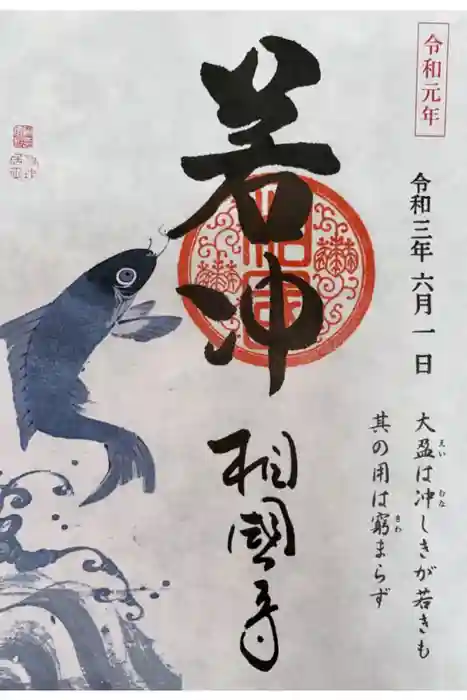 令和元年
令和三年 六月一日
大盈は冲しきが若きも
えい
むな
其の用は窮まらず
きわ
若冲
相國寺